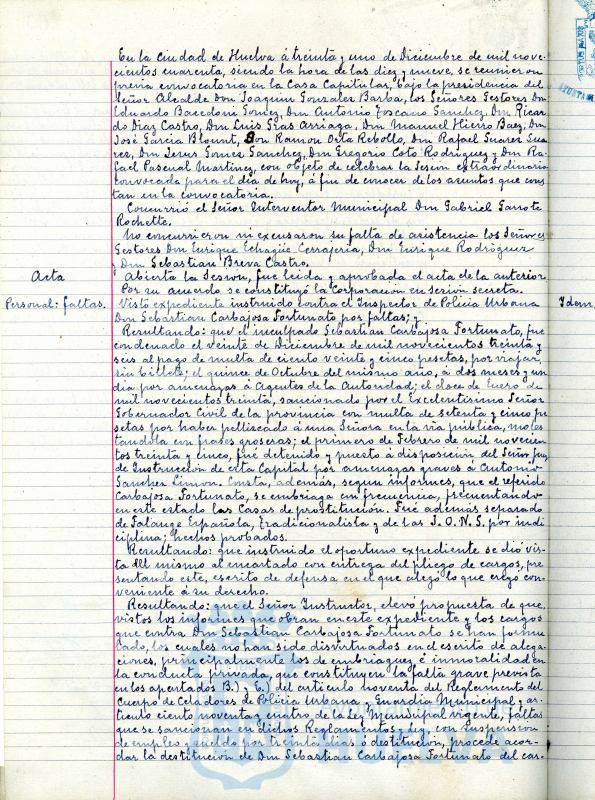 En la ciudad de Huelva á treinta y uno de Diciembre de mil nove-
cientos cuarenta, siendo la hora de las diez y nueve, se reunieron
previa convocatoria en la Casa Capitular, bajo la presidencia del
Señor Alcalde Don Joaquin Gonzalez Barba, los Señores Gestores Don
Eduardo Gomez, Don Antonio Toscano Sanchez, Don Ricar-
do Diaz Castro, Don Luis Gras Arriaga, Don Manuel Hierro Baez, Don
José Garcia Blount, Don Ramon Orta Rebollo, Don Rafael Suarez Sua-
rez, Don Jesus Gomez Sanchez, Don Gregorio Coto Rodriguez y Don Ra-
fael Pascual Martinez, con objeto de celebrar la Sesion extraordinaria
convocada para el dia de hoy, á fin de conocer de los asuntos que cons-
tan en la convocatoria.
Concurrió el Señor Interventor Municipal Don Gabriel Garrote
Rochette.
No concurrieron ni excusaron su falta de asistencia los Señores
Gestores Don Enrique Echagüe Cerrajeria, Don Enrique Rodríguez
Don Sebastian Breva Castro.
Acta
Abierta la Sesion, fue leida y aprobada el acta de la anterior.
Por su acuerdo se constituyó la Corporacion en sesion secreta.
Personal: faltas.
Visto expediente instruido contra el Inspector de Policia Urbana
Idem.
Don Sebastian Carbajosa Fortunato por faltas; y
Resultando: que el inculpado Sebastian Carbajosa Fortunato, fue
condenado el veinte de Diciembre de mil novecientos treinta y
seis al pago de multa de ciento veinte y cinco pesetas, por viajar
sin billete; el quince de Octubre del mismo año, á dos meses y un
dia por amenazas á Agentes de la Autoridad; el doce de Enero de
mil novecientos treinta, sancionado por el Excelentisimo Señor
Gobernador Civil de la provincia con multa de setenta y cinco pe-
setas por haber pellizcado á una Señora en la via pública, moles-
tandola con frases groseras; el primero de Febrero de mil novecien-
tos treinta y cinco, fué detenido y puesto á disposicion del Señor Juez
de Instruccion de esta Capital por amenazas graves á Antonio
Sanchez Limon. Consta, además, segun informes, que el referido
Carbajosa Fortunato, se embriaga con frecuencia, frecuentando
en este estado las Casas de prostitucion. Fué además separado
de Falange Española, Tradicionalista y de las J.O.N.S. por indis-
ciplina; hechos probados.
Resultando: que instruido el oportuno expediente se dió vis-
ta del mismo al encartado con entrega del pliego de cargos, pre-
sentando este, escrito de defensa en el que alegó lo que creyó con-
veniente á su derecho.
Resultando: que el Señor Instructor, elevó propuesta de que,
vistos los informes que obran en este expediente y los cargos
que contra Don Sebastian Carbajosa Fortunato se han formu-
lado, los cuales no han sido desvirtuados en el escrito de alega-
ciones, principalmente los de embriaguez é inmoralidad en
la conducta privada, que constituyen la falta grave prevista
en los apartados B.) y E.) del articulo noventa del Reglamento del
Cuerpo de Celadores de Policia Urbana y Guardia Municipal y ar-
ticulo ciento noventa y cuatro de la Ley Municipal vigente, faltas
que se sancionan en dichos Reglamentos y Ley con suspension
de empleo y sueldo por treinta dias ó destitucion, procede acor-
dar la destitucion de Don Sebastian Carbajosa Fortunato del car-